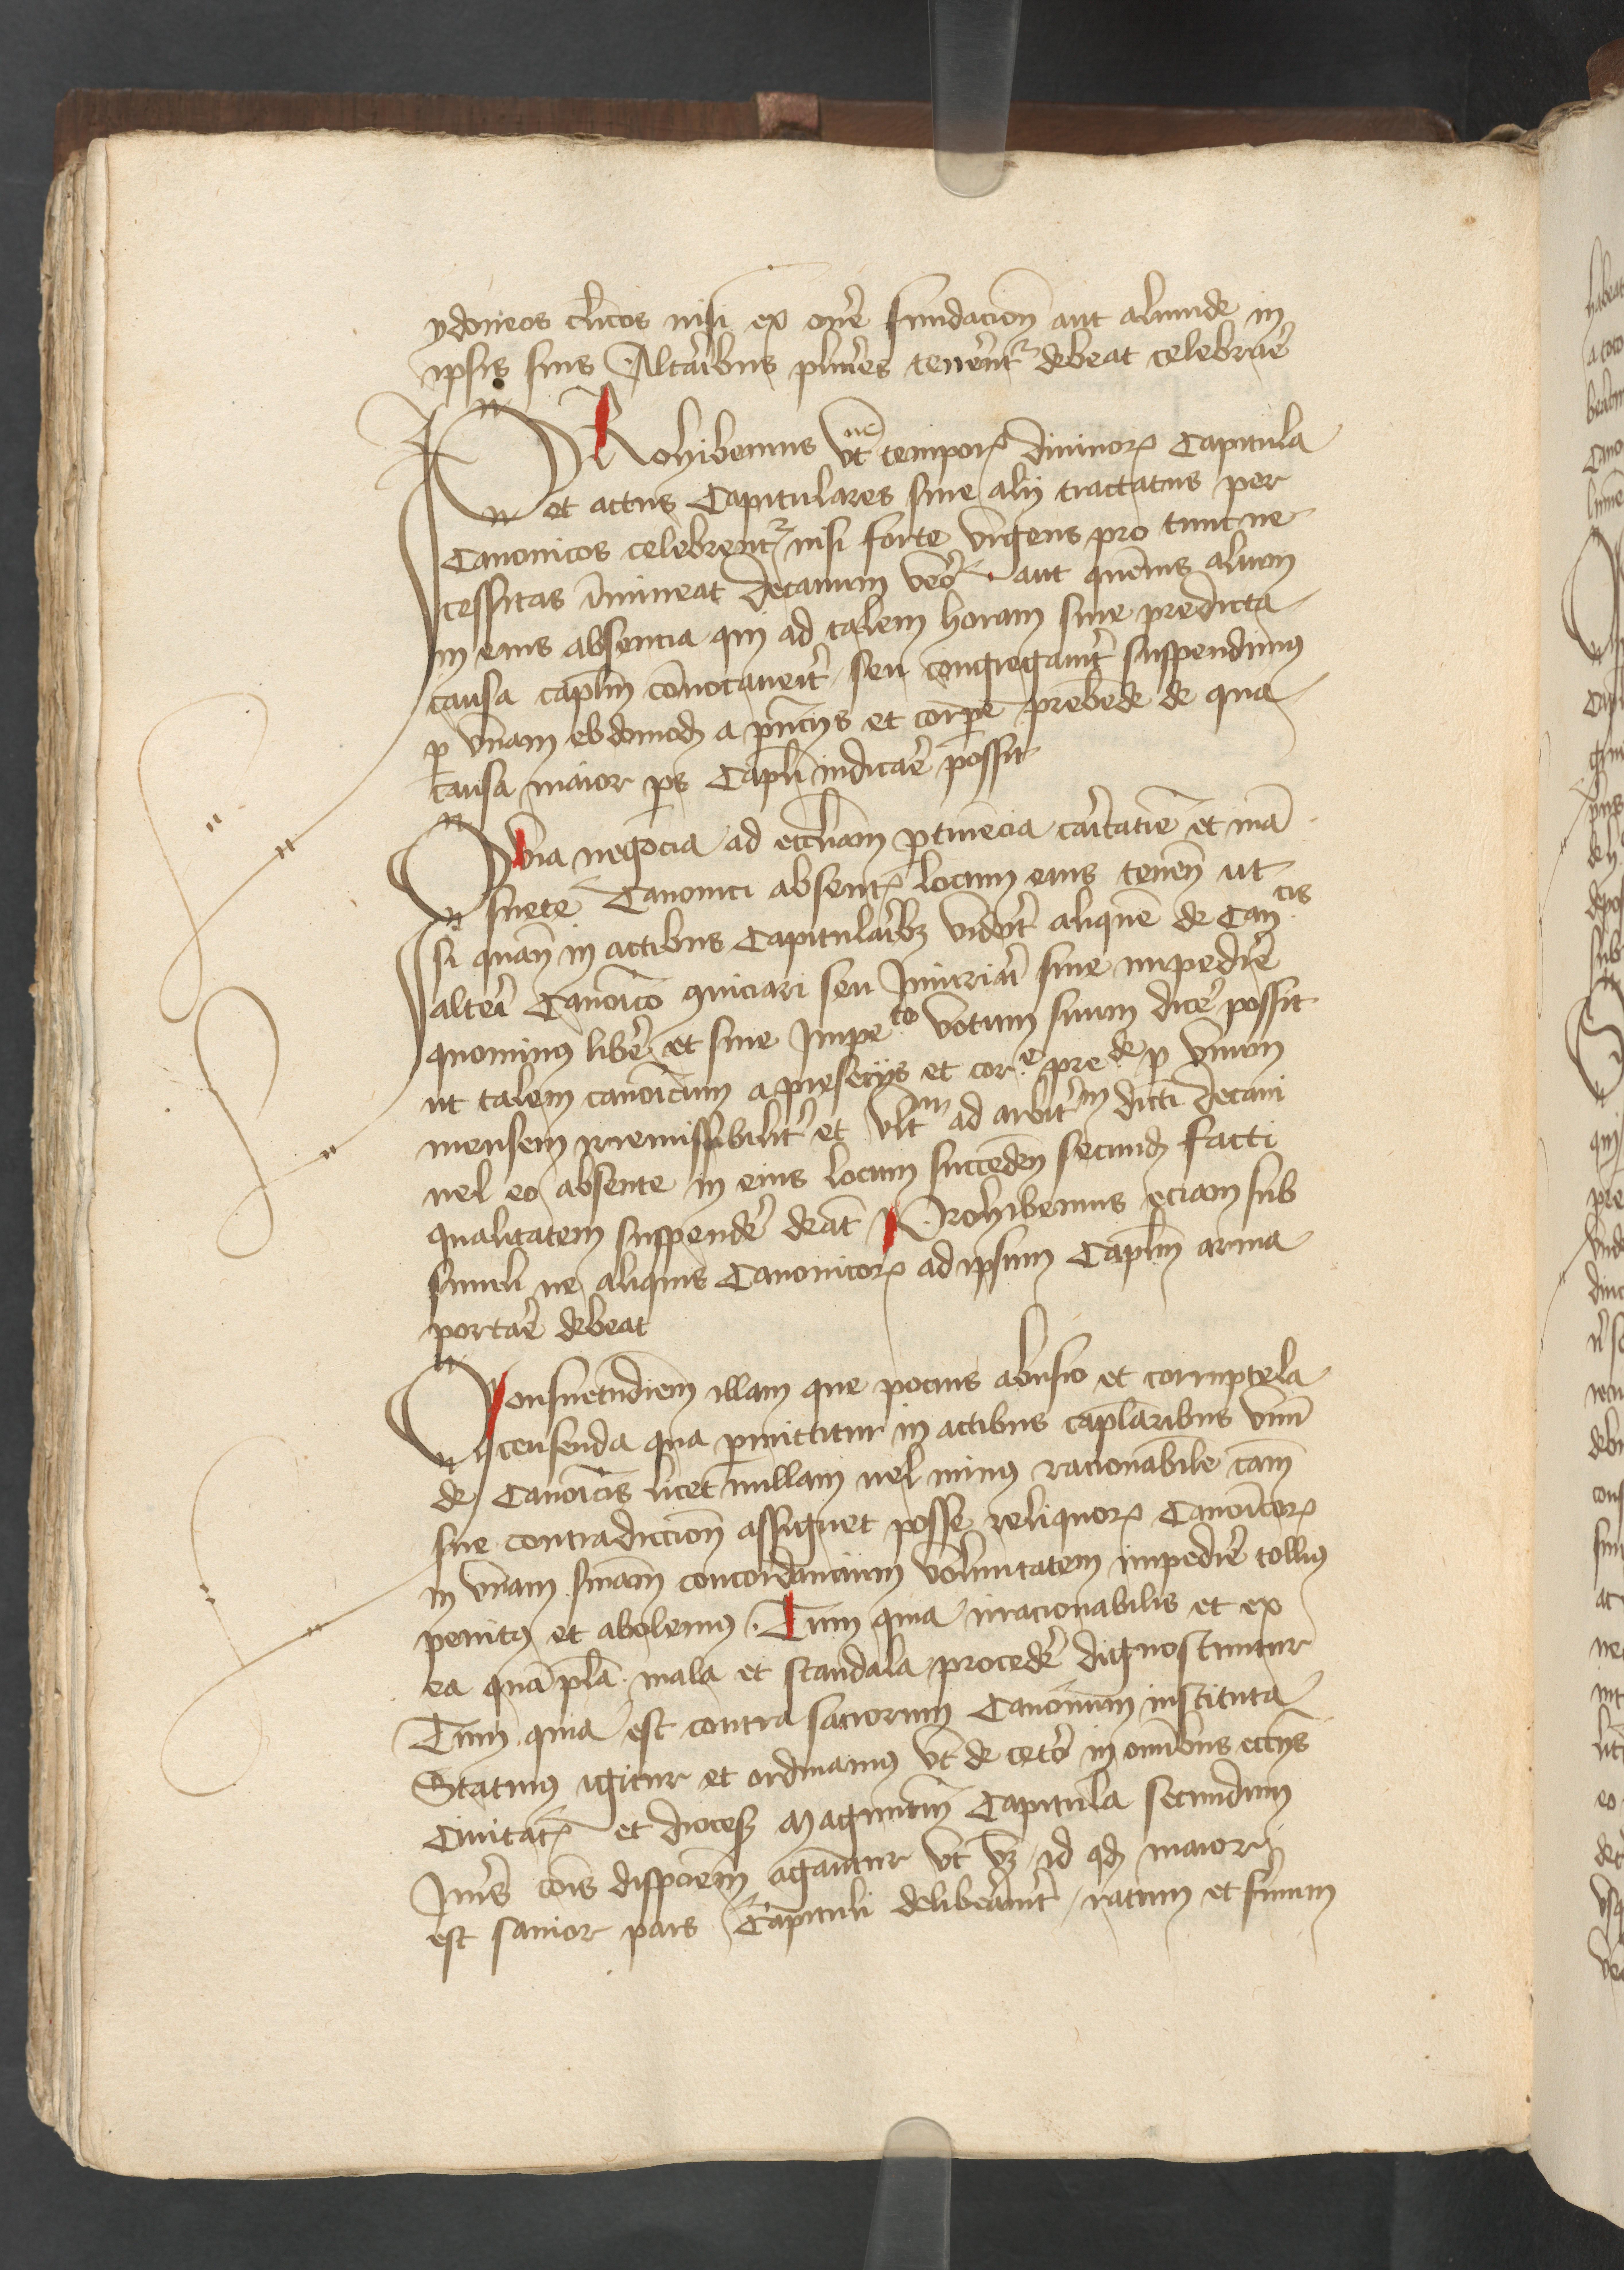 ydoneos cl̄icos nisi ex on̄e fundacion̄ aut aliunde in
ipsis suis Altaribus plur̄es teneren̄t debeat celebrar̄e
PRohibemus ne vt tempor̄ diuinor̄ Capitula
et actus Capitulares siue alij tractatus per
Canonicos celebrent̄ nisi forte vrgens pro tunc ne
cessitas īmineat Decanum vero aut quēuis alium
in eius absencia qui ad talem horam sine predicta
causa capl̄m cōuocauerit̄ seu congregauerit̄ suspendimꝯ
p̄ vnam ebdomod̄ a pn̄cijs et corpe prebende de qua
causa maior ps Capl̄i iudicar̄e possit
QVia negocia ad eccl̄iam ptinēcia caritatiē et mā
suete Canonici absent̄ locum eius tenen̄ ut
si quan̄ in actibus Capitularibꝫ viderit̄ aliquē de Can cis
alter̄i Canoīco ꝯuiciari seu Iniuriari siue impedir̄e
quominꝯ liber̄e et sine Impe to votum suum dicer̄e possit
ut talem canoīcum a presēcijs et cor e pre de p̄ vnum
mensem irremissibilit̄ et vlt m ad arbit m dicti Decani
uel eo absente in eius locum succeden̄ secund̄ facti
qualitatem suspender̄e debeat̄ Prohibemus eciam sub
simili ne aliquis Canonicor̄ ad ipsum Capl̄m arma
portar̄e debeat
Consuetudiem̄ illam que pocius abusio et corruptela
censenda qua pmittitur in actibus capl̄aribus vnū
de Canoīcis licet nullam uel minꝯ racionabile cām
sue contradiccion̄ assignet posse reliquor̄ Canoīcor̄
in vnam sniam̄ concordancium voluntatem impedir̄e tollimꝯ
penitꝯ et abolemꝯ Tum quia irracionabilis et ex
ea quā pl̄a mala et scandala proceder̄e dignoscuntur
Tum quia est contra sacrorum Canonum instituta
Statuimꝯ igitur et ordinamus vt de cetero in om̄ibus eccl̄ijs
Ciuitat̄ et dioces̄ Magūtin̄ Capitula secundum
Iur̄is cois disposiciem̄ agantur vt vꝫ id qd̄ maior
est sanior pars Capituli deliberauerit̄ ratum et firmum